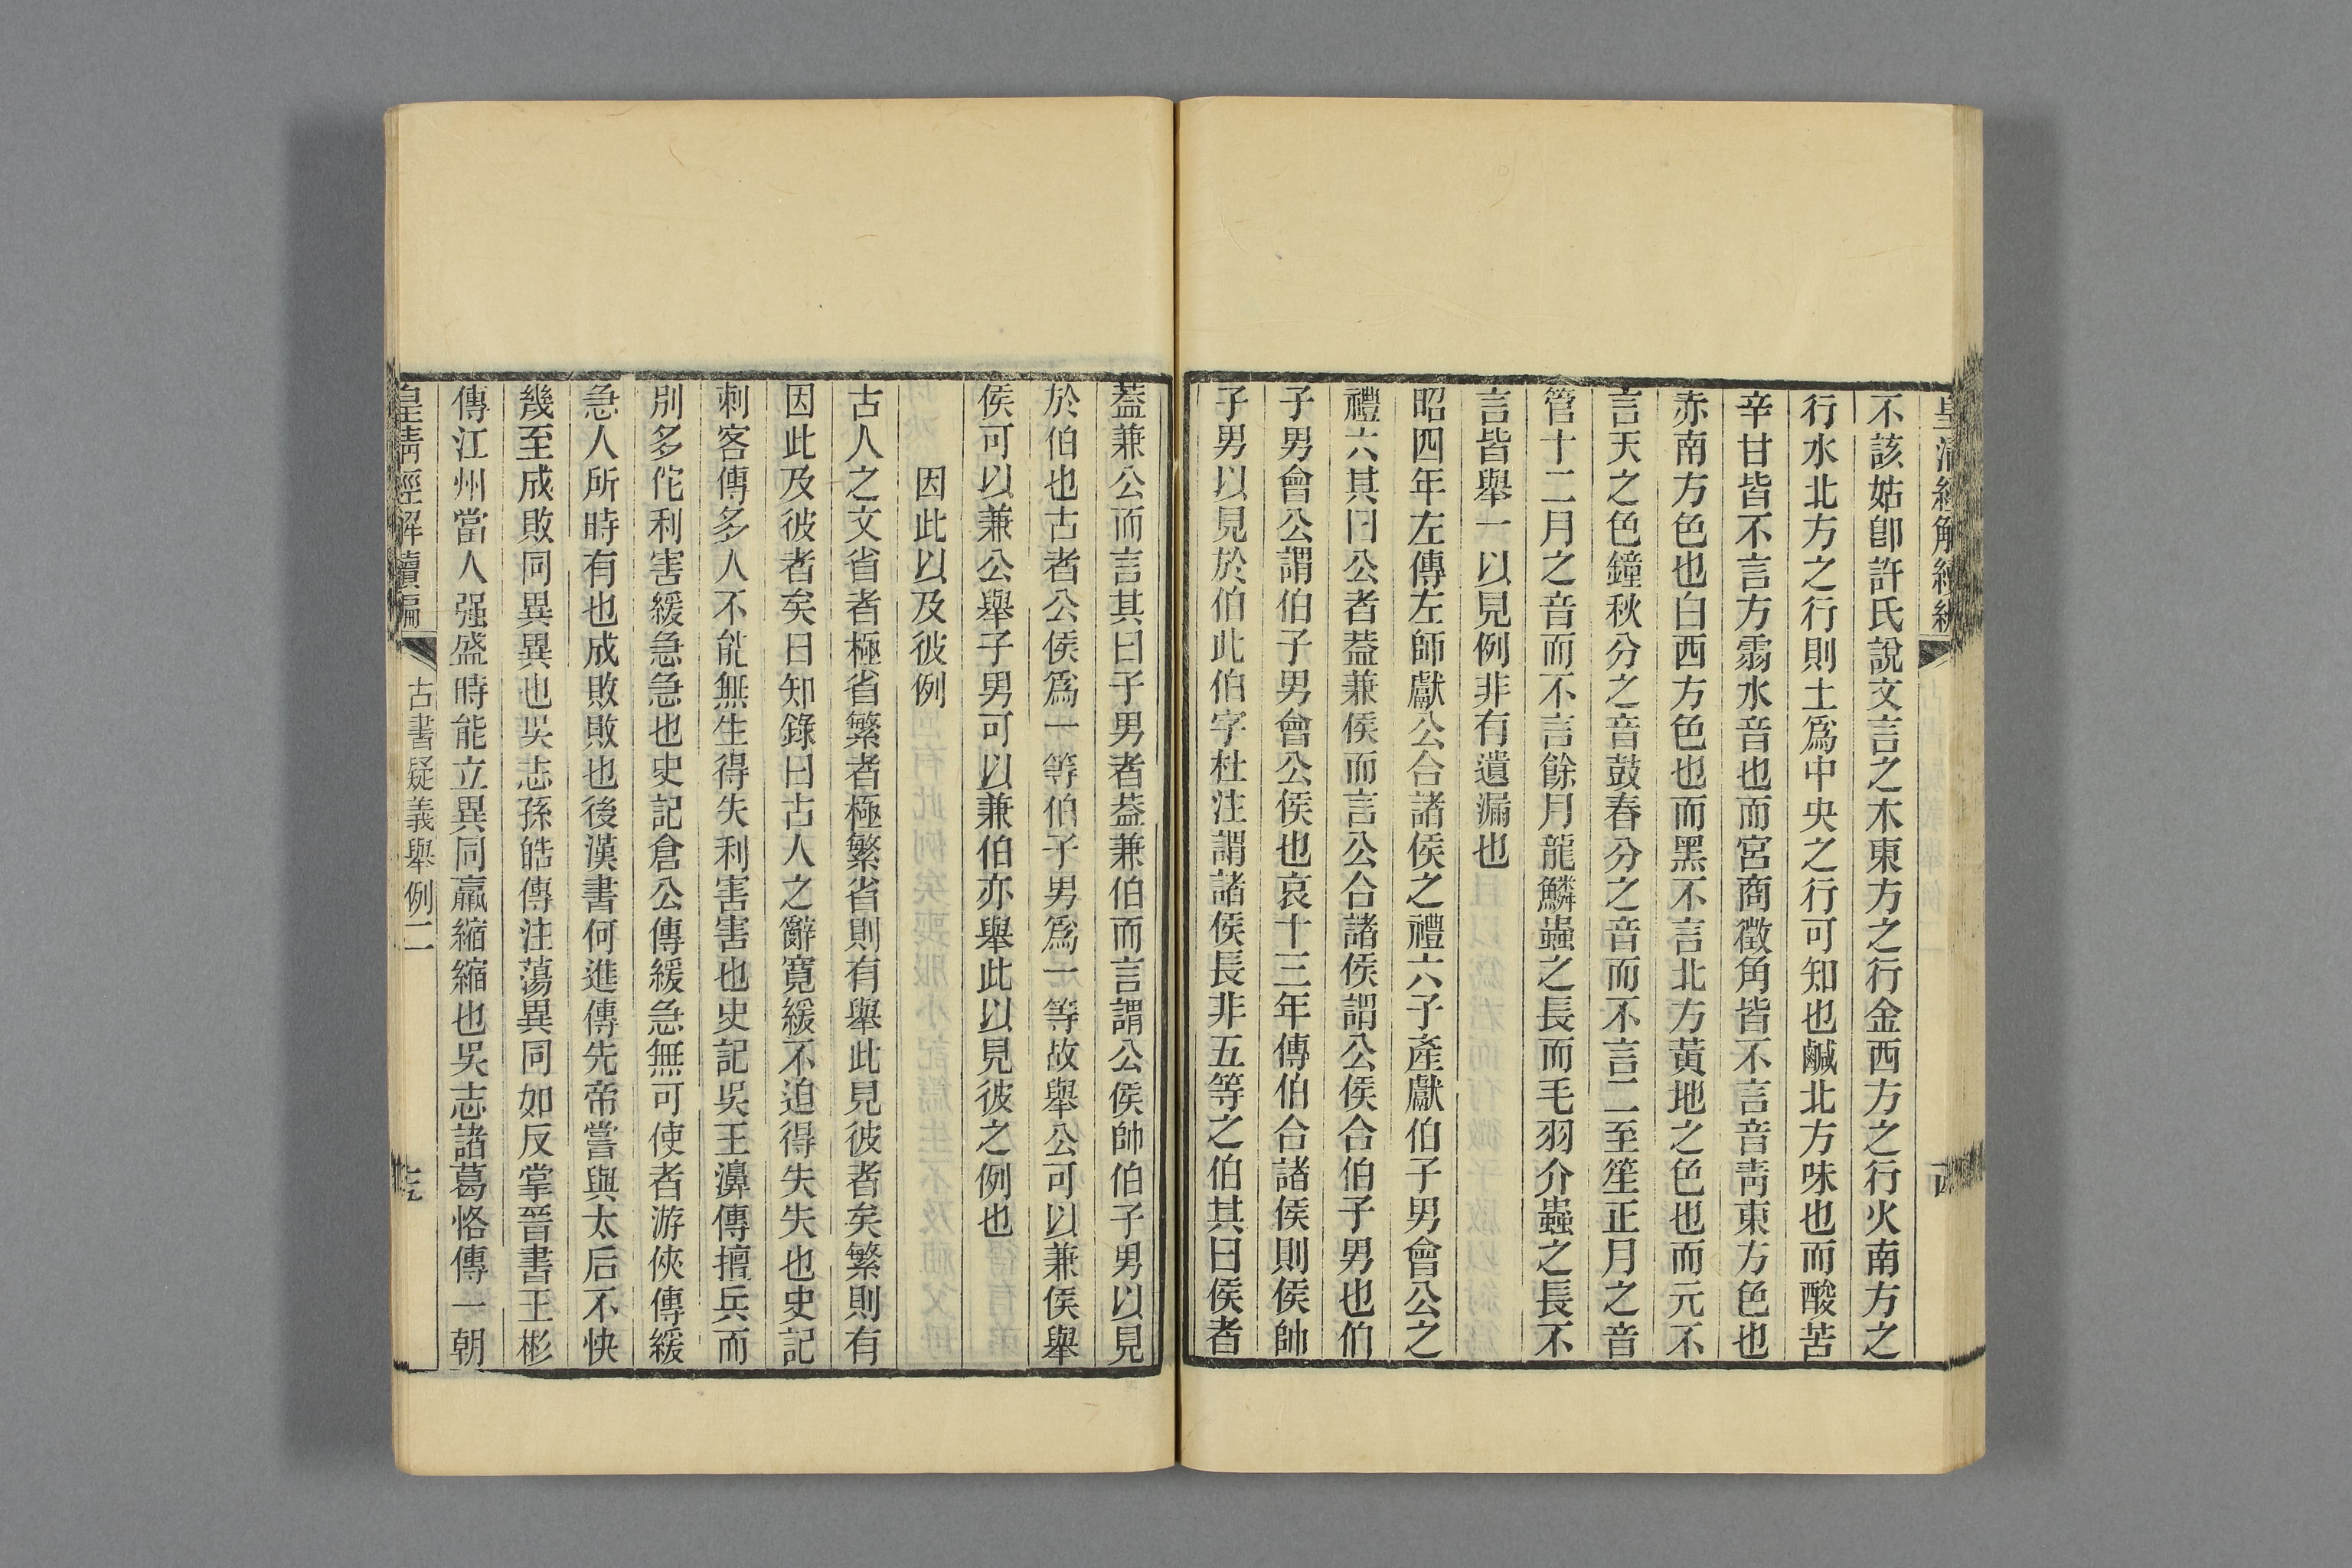 皇清經解續編
不該姑卽許氏說文言之木東方之行金西方之行火南方之
行水北方之行則土爲中央之行可知也鹹北方味也而酸苦
辛甘皆不言方霸水音也而宮商徵角皆不言音靑東方色也
赤南方色也白西方色也而黑不言北方黃地之色也而元不
言天之色鐘秋分之音鼓春分之音而不言二至笙正月之音
管十二月之音而不言餘月龍鱗蟲之長而毛羽介蟲之長不
言皆舉一以見例非有遺漏也
昭四年左傳左師獻公合諸侯之禮六子產獻伯子男會公之
禮六其曰公者葢兼侯而言公合諸侯謂公侯合伯子男也伯
子男會公謂伯子男會公侯也哀十三年傳伯合諸侯則侯帥
子男以見於伯此伯字杜注謂諸侯長非五等之伯其曰侯者
葢兼公而言其曰子男者葢兼伯而言謂公侯帥伯子男以見
於伯也古者公侯爲一等伯子男爲一等故舉公可以兼侯舉
侯可以兼公舉子男可以兼伯亦舉此以見彼之例也
因此以及彼例
古人之文省者極省繁者極繁省則有舉此見彼者矣繁則有
因此及彼者矣日知錄曰古人之辭寬緩不迫得失失也史記
刺客傳多人不能無生得失利害害也史記吳王濞傳擅兵而
別多佗利害緩急急也史記倉公傳緩急無可使者游俠傳緩
急人所時有也成敗敗也後漢書何進傳先帝嘗與太后不快
幾至成敗同異異也吳志孫皓傳注蕩異同如反掌晉書王彬
傳江州當人强盛時能立異同贏縮縮也吳志諸葛恪傳一朝
皇清經解續編
古書疑義舉例二